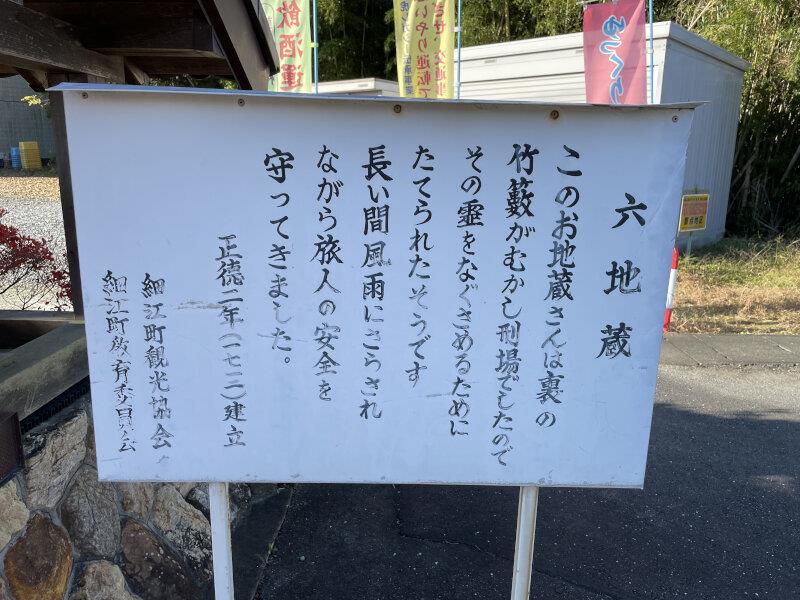 六地蔵
このお地蔵さんは裏の
竹藪がむかし刑場でしたので
その霊をなぐさめるために
たてられたそうです
長い間風雨にさらされ
ながら旅人の安全を
守ってきました。
正徳二年(一七一二)建立
細江町観光協会
細江町教育委員会
飲酒運
いやり運転で
ゆっくり